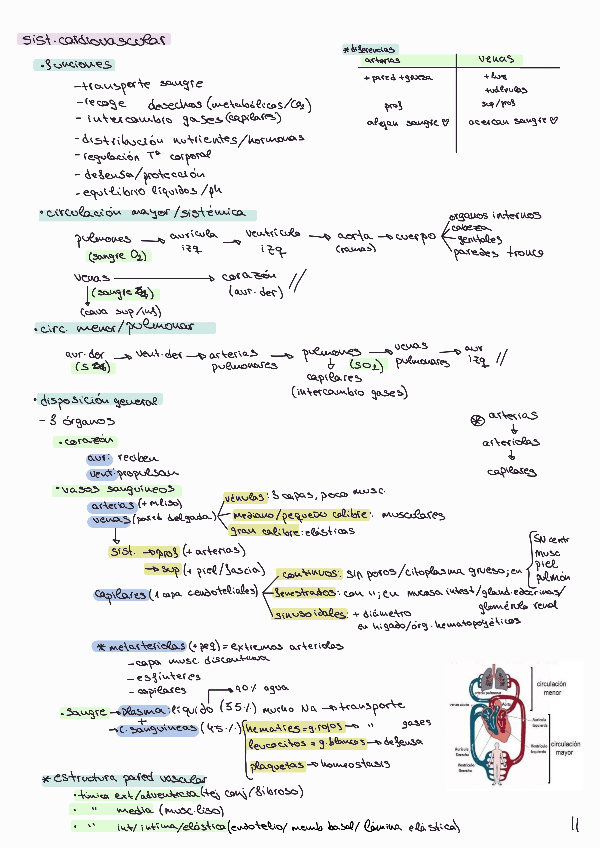 sist. cardiovascular
* diferencias
arterias | venas
+ pared + gruesa | + luz
+ válvulas
prof | sup/prof
alejan sangre ♡ | acercan sangre ♡
• funciones
- transporte sangre
- recoge desechos (metabólicas/CO2)
- intercambio gases (capilares)
- distribución nutrientes/hormonas
- regulación Tª corporal
- defensa/protección
- equilibrio líquidos/ph
• circulación mayor/sistémica
pulmones → aurícula izq → ventrículo izq → aorta (ramas) → cuerpo
(sangre O2)
órganos internos
cabeza
genitales
paredes tronco
venas → corazón //
(sangre) (aur. der)
(cava sup/inf)
• circ. menor/pulmonar
aur. der → vent. der → arterias pulmonares → pulmones → venas pulmonares → aur izq //
(SO2)
capilares
(intercambio gases)
• disposición general
- 3 órganos
• corazón
aur: reciben
vent: propulsan
⊛ arterias
↓
arteriolas
↓
capilares
• vasos sanguíneos
arterias (+ m. liso)
venas (pared delgada)
vénulas: 3 capas, poco musc.
mediano/pequeño calibre: musculares
gran calibre: elásticas
sist. → prof (+ arterias)
→ sup (+ piel/fascia)
capilares (1 capa endoteliales)
continuos: sin poros/citoplasma grueso; en
SN centr
musc
piel
pulmón
fenestrados: con "; en mucosa intest/gland. endocrinas/
glomérulo renal
sinusoidales: + diámetro
en hígado/órg. hematopoyéticos
* metarteriolas (+ peq) = extremos arteriolas
- capa musc. discontinua
- esfínteres
- capilares
→ 90% agua
• sangre → plasma: líquido (55%) mucho Na → transporte
+
→ c. sanguíneas (45%)
hematíes = g. rojos → " gases
leucocitos = g. blancos → defensa
plaquetas → homeostasis
circulación menor
circulación mayor
Aurícula Izquierda
Ventrículo Izquierdo
Aurícula Derecha
Ventrículo Derecho
* estructura pared vascular
• túnica ext/adventicia (tej conj/fibroso)
• " media (musc. liso)
• " int/íntima/elástica (endotelio/memb basal/lámina elástica)